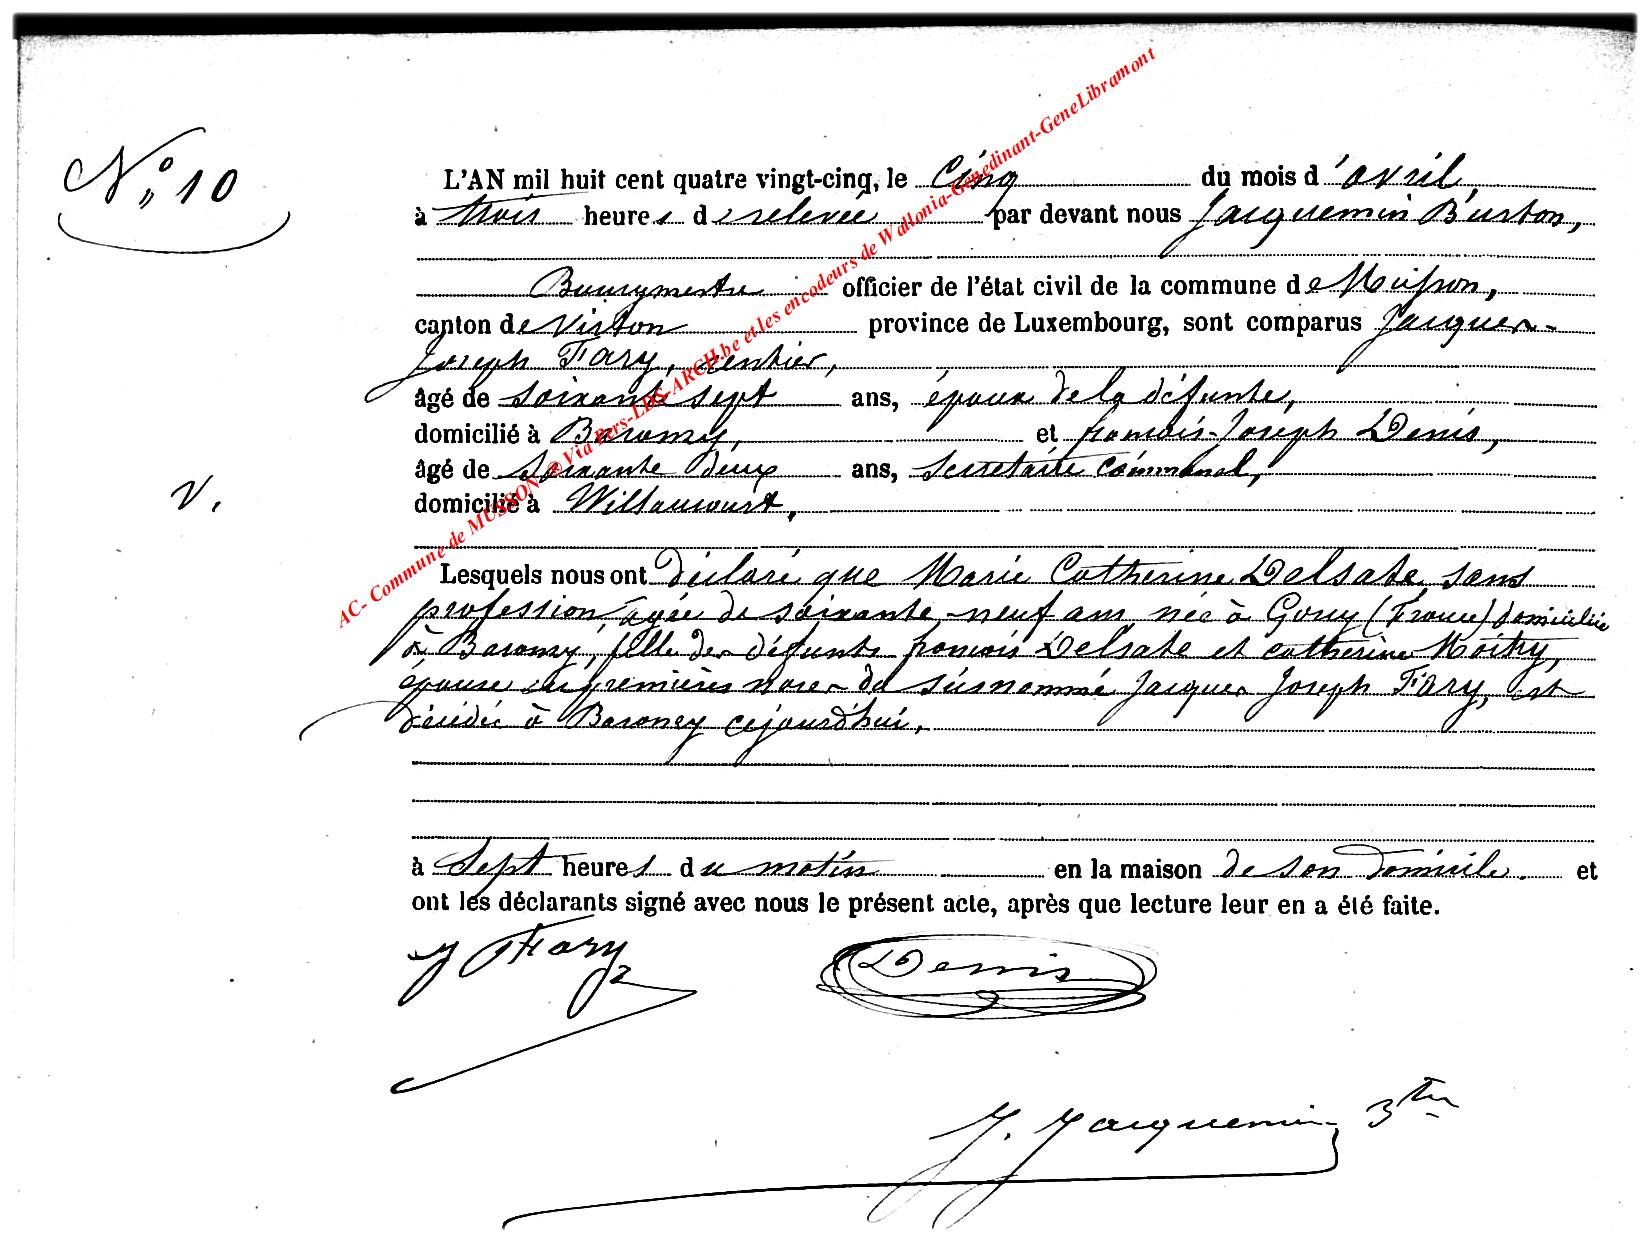 N° 10
L'AN mil huit cent quatre vingt-cinq, le Cinq du mois d'avril,
à trois heures de relevée par devant nous Jacquemin Burton,
Bourgmestre officier de l'état civil de la commune de Musson,
canton de Virton province de Luxembourg, sont comparus Jacques-
Joseph Fary, rentier,
âgé de soixante sept ans, époux de la défunte,
domicilié à Baranzy, et françois-Joseph Denis,
âgé de soixante deux ans, secrétaire communal,
domicilié à Willancourt,
V.
Lesquels nous ont déclaré que Marie Catherine Delsate, sans
profession, agée de soixante-neuf ans, née à Gorcy (France) domiciliée
à Baranzy, fille des défunts françois Delsate et catherine
épouse en premières noces du susnommé Jacques Joseph Fary, est
décédée à Baranzy cejourd'hui,
à sept heures du matin en la maison de son domicile. et
ont les déclarants signé avec nous le présent acte, après que lecture leur en a été faite.
J Fary
Denis
J. Jacquemin
AC- Commune de MUSSON @ Via Pers-LDS-ARCH.be et les encodeurs de Wallonia-Genedinant-GeneLibramont